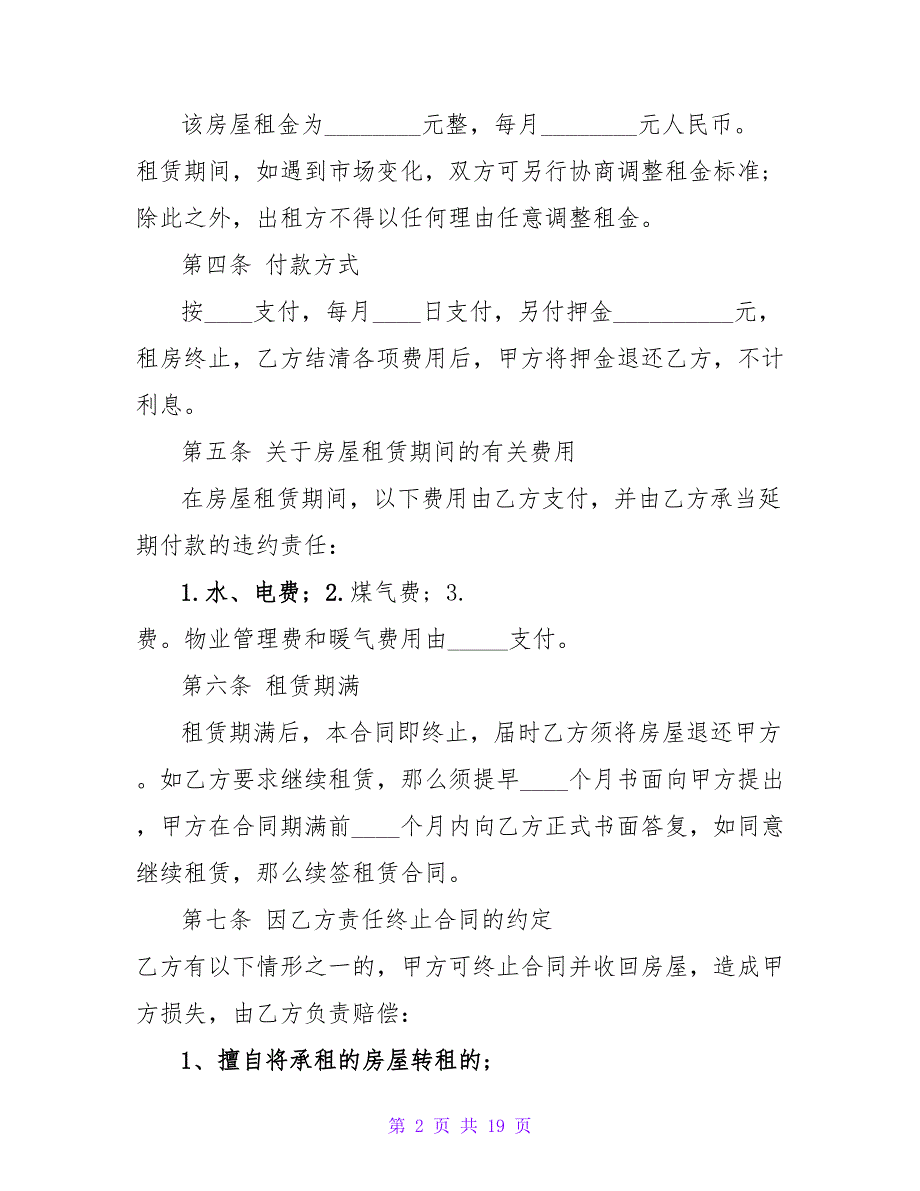 该房屋租金为________元整，每月________元人民币。
租赁期间，如遇到市场变化，双方可另行协商调整租金标准；
除此之外，出租方不得以任何理由任意调整租金。
第四条 付款方式
按____支付，每月____日支付，另付押金__________元，
租房终止，乙方结清各项费用后，甲方将押金退还乙方，不计
利息。
第五条 关于房屋租赁期间的有关费用
在房屋租赁期间，以下费用由乙方支付，并由乙方承当延
期付款的违约责任：
1.水、电费；2.煤气费；3.
费。物业管理费和暖气费用由_____支付。
第六条 租赁期满
租赁期满后，本合同即终止，届时乙方须将房屋退还甲方
。如乙方要求继续租赁，那么须提早____个月书面向甲方提出
，甲方在合同期满前____个月内向乙方正式书面答复，如同意
继续租赁，那么续签租赁合同。
第七条 因乙方责任终止合同的约定
乙方有以下情形之一的，甲方可终止合同并收回房屋，造成甲
方损失，由乙方负责赔偿：
1、擅自将承租的房屋转租的；
第 2 页 共 19 页